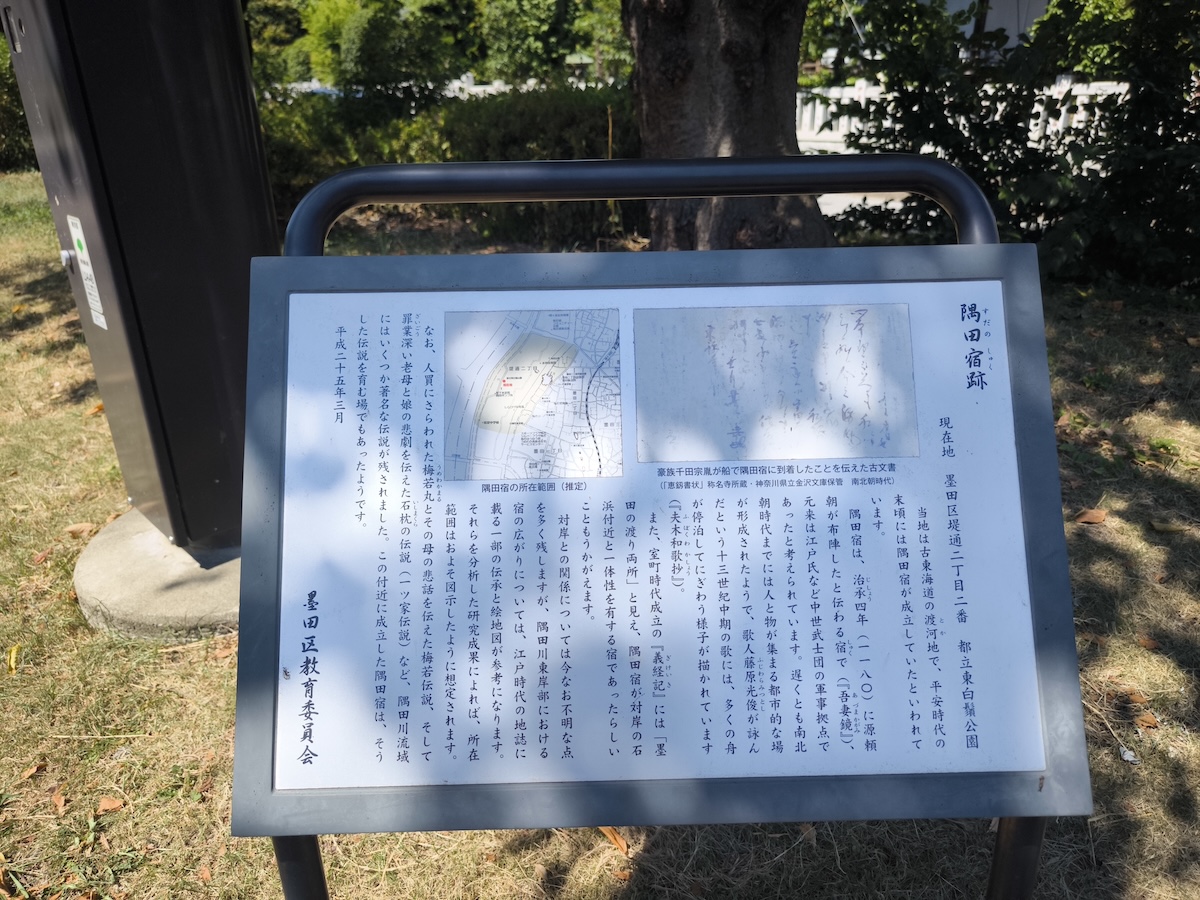 隅田宿跡
すだの しゅく
現在地 墨田区堤通二丁目二番 都立東白鬚公園
当地は古東海道の渡河地で、平安時代の
末頃には隅田宿が成立していたといわれて
います。
隅田宿は、治承四年（一一八〇）に源頼
朝が布陣したと伝わる宿で（『吾妻鏡』）、
元来は江戸氏など中世武士団の軍事拠点で
あったと考えられています。遅くとも南北
朝時代までには人と物が集まる都市的な場
が形成されたようで、歌人藤原光俊が詠ん
だという十三世紀中期の歌には、多くの舟
が停泊してにぎわう様子が描かれています
（『夫木和歌抄』）。
また、室町時代成立の『義経記』には「墨
田の渡り両所」と見え、隅田宿が対岸の石
浜付近と一体性を有する宿であったらしい
こともうかがえます。
対岸との関係については今なお不明な点
を多く残しますが、隅田川東岸部における
宿の広がりについては、江戸時代の地誌に
載る一部の伝承と絵地図が参考になります。
それらを分析した研究成果によれば、所在
範囲はおよそ図示したように想定されます。
なお、人買にさらわれた梅若丸とその母の悲話を伝えた梅若伝説、そして
罪業深い老母と娘の悲劇を伝えた石枕の伝説（一ツ家伝説）など、隅田川流域
にはいくつか著名な伝説が残されました。この付近に成立した隅田宿は、そう
した伝説を育む場でもあったようです。
平成二十五年三月
墨田区教育委員会
豪族千田宗胤が船で隅田宿に到着したことを伝えた古文書
（「恵釼書状」称名寺所蔵・神奈川県立金沢文庫保管 南北朝時代）
隅田宿の所在範囲（推定）